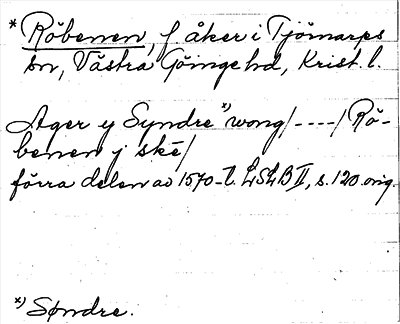 * Röbenen, f. åker i Tjörnarps
sn, Västra Göinge hd, Krist. l.
Ager y Syndre *) wong/----/Rö-
benen j ske/
förra delen av 1570-t. LSLB II, s. 120 orig.
*) Søndre.